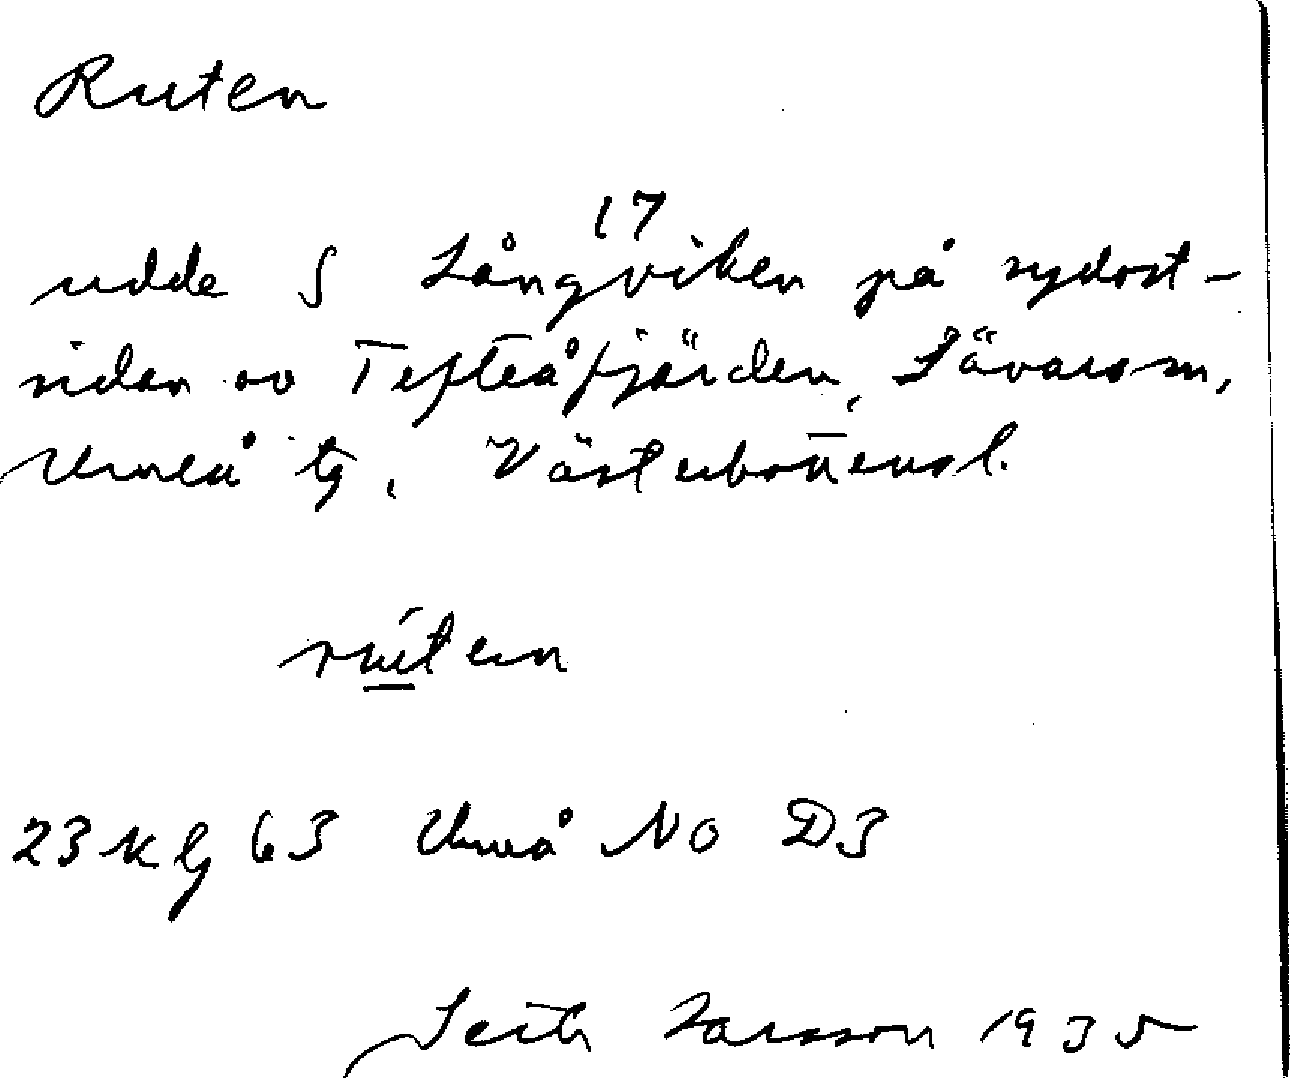 Ruten
17
udde S Långviken på sydost-
sidan av Tefteåfjärden, Sävars sn,
Umeå tg, Västerbottensl.
rúten
23 K 6 63 Umeå NO D3
Seth Larsson 1935